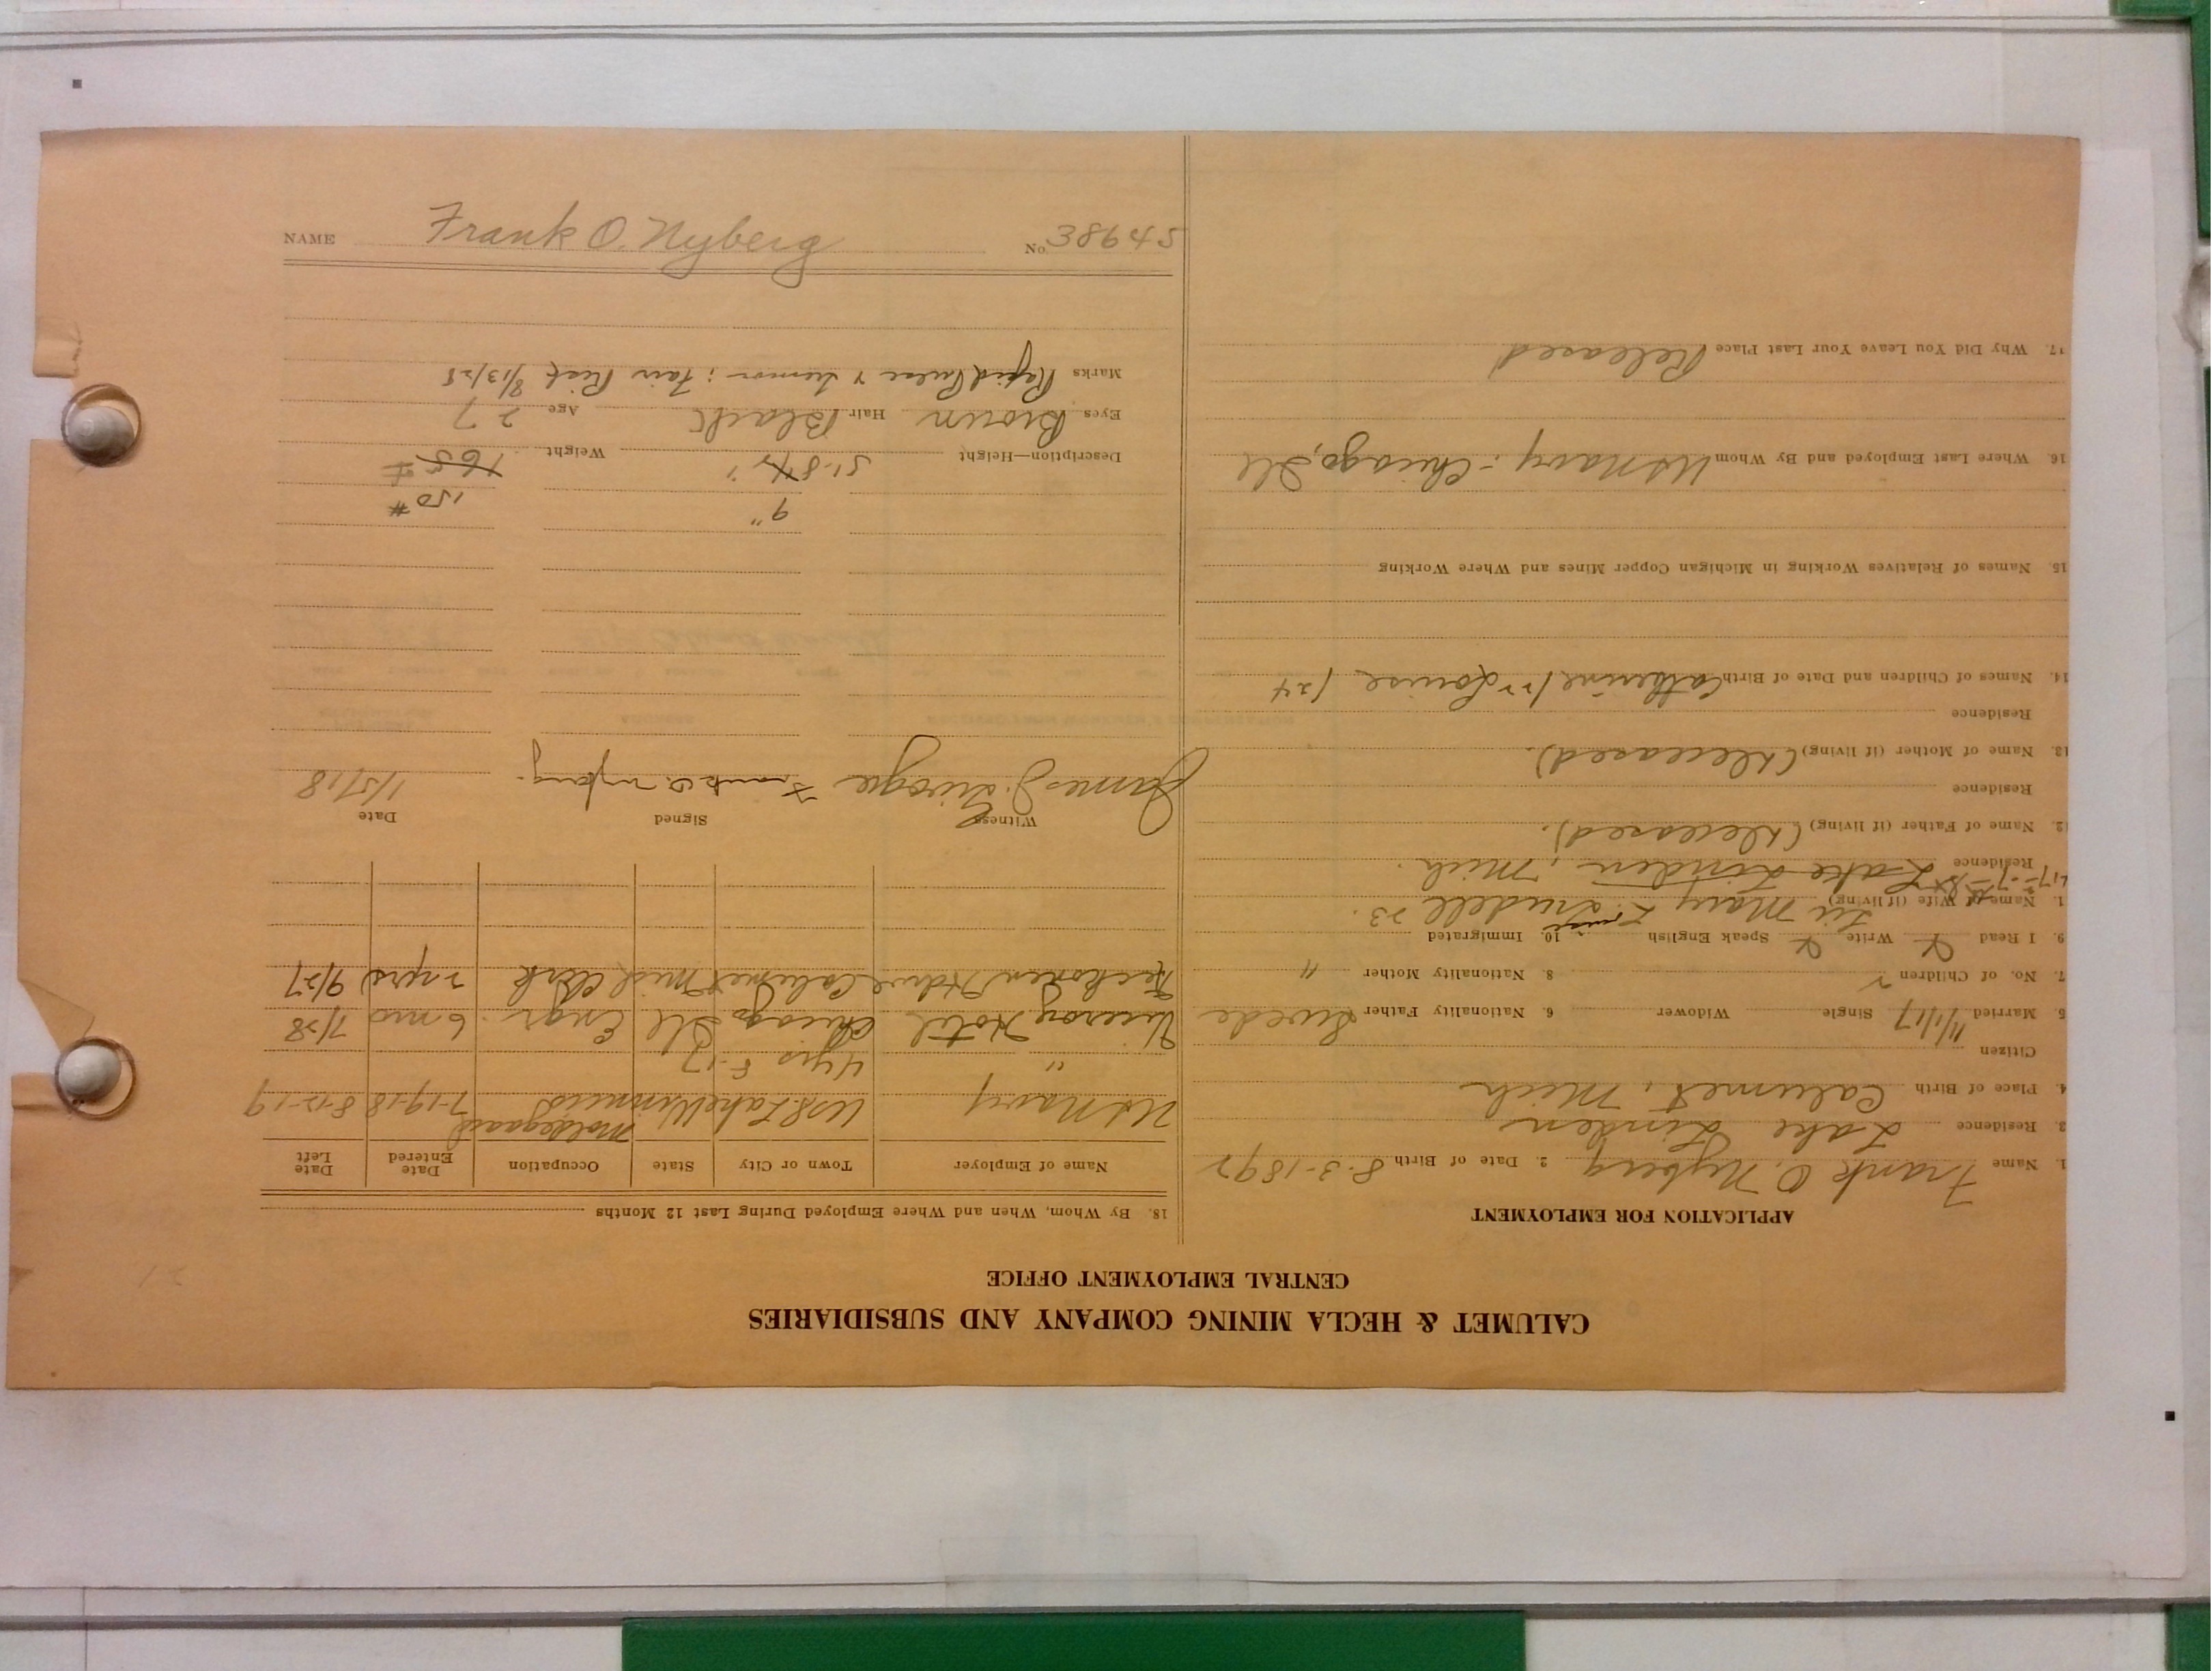 CALUMET & HECLA MINING COMPANY AND SUBSIDIARIES
CENTRAL EMPLOYMENT OFFICE
APPLICATION FOR EMPLOYMENT
1. Name Frank O. Nyberg 2. Date of Birth 8-3-1892
3. Residence Lake Linden
4. Place of Birth Calumet, Mich
Citizen
5. Married 11/1/17 Single Widower 6. Nationality Father Swede
7. No. of Children 2 8. Nationality Mother "
9. I Read Write Speak English 10. Immigrated
1. Name of Wife (if living) Mary Trudell 23.
Residence Lake Linden, Mich.
12. Name of Father (if living) (Deceased).
Residence
13. Name of Mother (if living) (Deceased).
Residence
14. Names of Children and Date of Birth Catherine /22 Louise /24
15. Names of Relatives Working in Michigan Copper Mines and Where Working
16. Where Last Employed and By Whom US Navy - Chicago, Ill
17. Why Did You Leave Your Last Place Released
18. By Whom, When and Where Employed During Last 12 Months
Name of Employer Town or City State Occupation Date Entered Date Left
US Navy 7-19-18 8-12-19
" 4 yrs
Viceroy Hotel Chicago Ill Engr. 6 mo 7/28
Hdwe Calumet Mich Clerk 2 yrs 9/27
Witness Signed Date
James J. Frank O. Nyberg
Description—Height 5'-8 1/2" Weight 165 #
9" 150 #
Eyes Brown Hair Black Age 27
Marks Rapid Pulse & ; Fair Risk 8/13/28
NAME Frank O. Nyberg No. 38645